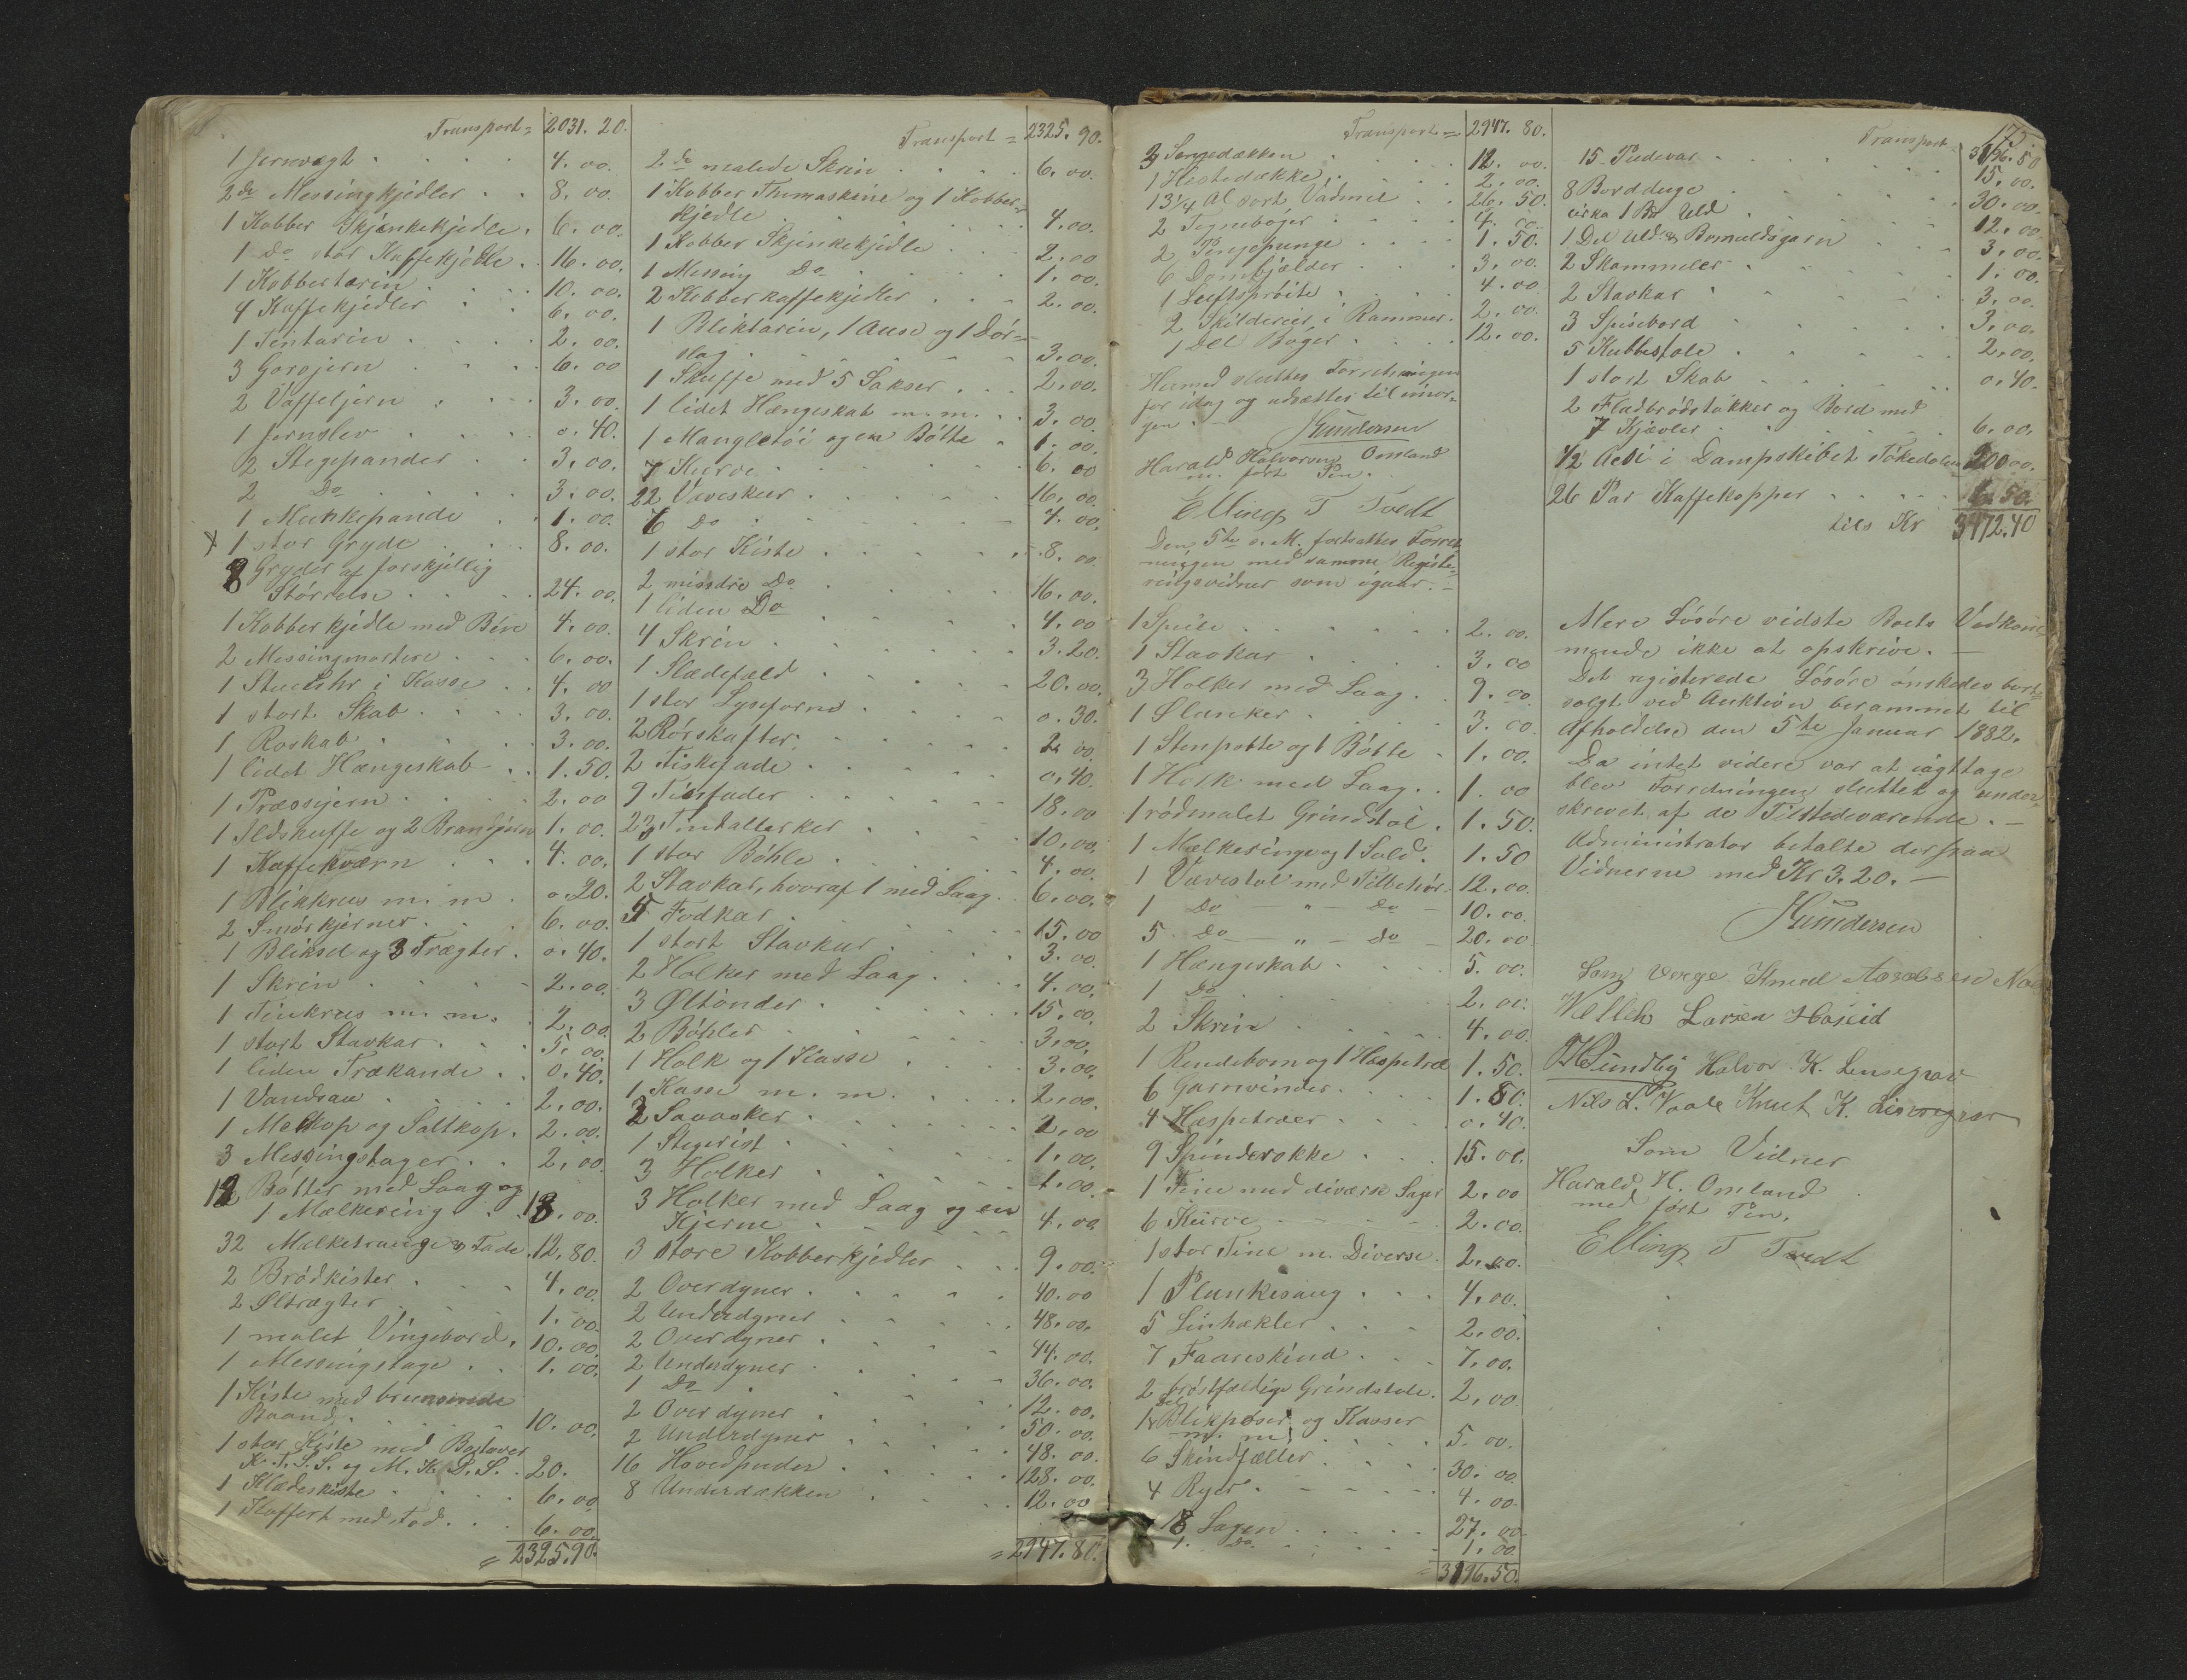 Transport = 2031. 20.
1 Jernvægt 4. 00.
2 do Messingkjedler 8. 00.
1 Kobber Skjænkekjedle 6. 00.
1 Do stor Kaffekjedle 16. 00.
1 Kobbertarin 10. 00.
4 Kaffekjedler 6. 00.
1 Tintarin 2. 00.
3 Gorojern 6. 00
2 Vaffeljern 3. 00.
1 Jernslev 0. 40.
2 Stegepander 3. 00.
2 Do 3. 00.
1 Munkepande 1. 00.
1 stor Gryde 8. 00.
8 Gryder af forskjellig
Störrelse 24. 00.
1 Kobberkjedle med Ben 4. 00.
2 Messingmortere 6. 00.
1 Stueuhr i Kasse 4. 00
1 stort Skab 3. 00.
1 Roskab 3. 00.
1 lidet Hængeskab 1. 50.
1 Præssejern 2. 00
1 Ildskuffe og 2 Brandjern 1. 00.
1 Kaffekværn 4. 00.
1 Blikkrus m. m. 0. 20.
2 Smörkjerner 6. 00.
1 Bliksel og 3 Trægter 0. 40.
1 Skrin 2. 00.
1 Tinkrus m. m. 2. 00.
1 stort Stavkar 5. 00.
1 liden Trækande 0. 40.
1 Vandsaa 2. 00.
1 Melkop og Saltkop 2. 00.
3 Messingstager 2. 00.
12 Bötter med Laag og
1 Mælkering 18. 00.
32 Mælketrauge & Fade 12. 80.
2 Brödkister 4. 00.
2 Øltrægter 1. 00.
1 malet Vingebord 10. 00.
1 Messingstage 1. 00.
1 Kiste med
Baand 10. 00.
1 stor Kiste med Bogstaver
K. T. S. S. og M. K. D. S. 20.
1 Klædeskiste 6. 00
1 Koffert med Fod 6. 00.
= 2325. 90.
Transport = 2325. 90.
2 do malede Skrin 6. 00.
1 Kobber Themaskine og 1 Kobber-
kjedle 4. 00.
1 Kobber Skjænkekjedle 2. 00
1 Messing Do 1. 00.
2 Kobberkaffekjedler 2. 00.
1 Bliktarin, 1 Ause og 1 Dör-
slag 3. 00.
1 Skuffe med 5 Sakser 2. 00.
1 lidet Hængeskab m. m. 3. 00.
1 Mangletöi og en Bötte 1. 00.
7 Kurve 6. 00
22 Væveskeer 16. 00.
6 Do 4. 00.
1 stor Kiste 8. 00.
2 mindre Do 16. 00.
1 liden Do 4. 00
4 Skrin 3. 20.
1 Slædefæld 20. 00.
1 stor Lyseform 0. 30.
2 Rörskafter 2. 00.
2 Fiskefade 0. 40.
9 Tinfader 18. 00
23 Tintallerker 10. 00.
1 stor Böhle 4. 00.
2 Stavkar, hvoraf 1 med Laag 6. 00.
5 Fodkar 15. 00
1 stort Stavkar 3. 00.
2 Holker med Laag 4. 00.
3 Øltönder 15. 00.
2 Böhler 3. 00.
1 Holk og 1 Kasse 3. 00.
1 Kasse m. m. 2. 00.
2 Saaasker 2. 00
1 Stegerist 1. 00.
3 Holker 1. 00.
3 Holker med Laag og en
Kjerne 4. 00
3 store Kobberkjedler 9. 00.
2 Overdyner 40. 00
2 Underdyner 48. 00.
2 Overdyner 44. 00.
2 Underdyner 36. 00.
1 Do 12. 00.
2 Overdyner 50. 00.
2 Underdyner 48. 00.
16 Hovedpuder 128. 00.
8 Underdækken 12. 00
= 2947. 80.
Transport = 2947. 80.
3 Sengedækken 12. 00.
1 Hestedække 2. 00.
13 1/4 Al sort Vadmel 26. 50.
2 Tegneböger 4. 00.
2 Pengepunge 1. 50.
6 Dombjælder 3. 00.
1 Luftspröite 4. 00
2 Skilderier i Rammer 2. 00.
1 Del Böger 12. 00.
Hermed sluttes Forretningen
for idag og udsættes til imor-
gen. —
Gundersen
Harald Halvorsen Omland
m. fört Pen.
Elling T Tvedt
Den 5te s. M. fortsattes Forret-
ningen med samme Registe-
ringsvidner som igaar. —
1 Speile 2. 00.
1 Stavkar 3. 00
3 Holker med Laag 9. 00.
1 Ølanker 3. 00.
1 Stenpotte og 1 Bötte 1. 00.
1 Holk med Laag 1. 00
1 rödmalet Grindstol 1. 50.
1 Mælkeringe og 1 Sold 1. 50
1 Vævestol med Tilbehör 12. 00.
1 Do — " — Do 10. 00.
5 Do — " — Do 20. 00
1 Hængeskab 5. 00.
1 Do 2. 00.
2 Skrin 4. 00.
1 Rendebom og 1 Haspetræ 1. 50.
6 Garnvinder 1. 80.
4 Haspetræer 0. 40.
9 Spinderokke 15. 00.
1 Tine med diverse Sager 2. 00
6 Kurve 2. 00.
1 stor Tine m. Diverse 2. 00.
1 Plankesaug 4. 00.
5 Linhækler 2. 00.
7 Faareskind 7. 00.
2 bröstfældige Grindstole 2. 00
1 del Blikpöser og Kasser
m. m. 5. 00.
6 Skindfæller 30. 00.
4 Ryer 4. 00.
18 Lagen 27. 00.
1 Do 1. 00.
= 3196. 50.
175
Transport = 3196. 50
15 Pudevar 15. 00.
8 Bordduge 30. 00.
cirka 1 Bp Uld 12. 00
1 Del Uld & Bomuldsgarn 3. 00.
2 Skammeler 1. 00
2 Stavkar 3. 00.
3 Spisebord 3. 00.
5 Kubbestole 2. 00.
1 stort Skab 0. 40.
2 Fladbrödstakker og Bord med
7 Kjævler 6. 00.
1/2 Actie i Dampskibet Tokedølen 200 00.
26 Par Kaffekopper 6. 50.
tils Kr 3472. 40
Mere Lösöre vidste Boets Vedkom-
mende ikke at opskrive. —
Det registerede Lösöre önskedes bort-
solgt ved Auktion berammet til
Afholdelse den 5te Januar 1882.
Da intet videre var at iagttage
blev Forretningen sluttet og under-
skrevet af de Tilstedeværende. —
Administrator betalte derpaa
Vidnerne med Kr 3. 20. —
Gundersen
Som Verge Knud
Larsen Haseid
Halvor K. Lensegrav
Nils L. Vaale Knut K. Lensegrav
Som Vidner
Harald H. Omland
med fört Pen.
Elling T Tvedt